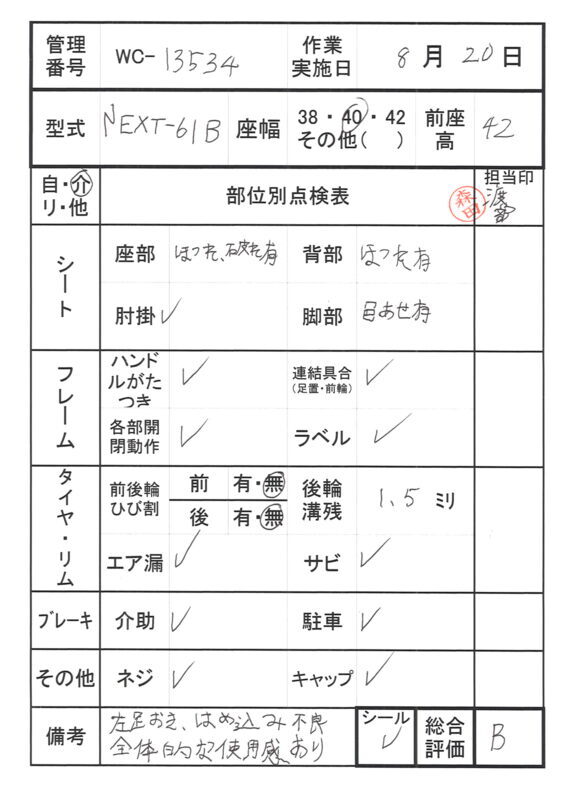 管理番号 WC-13534 作業実施日 8月20日
型式 NEXT-61B 座幅 38・40・42 その他( ) 前座高 42
自・介 リ・他 部位別点検表 担当印 森田
シート 座部 ほつれ、破れ有 背部 ほつれ有
肘掛 ✓ 脚部 色あせ有
フレーム ハンドルがたつき ✓ 連結具合(足置・前輪) ✓
各部開閉動作 ✓ ラベル ✓
タイヤ・リム 前後輪ひび割 前 有・無 後輪溝残 1.5 ミリ
後 有・無
エア漏 ✓ サビ ✓
ブレーキ 介助 ✓ 駐車 ✓
その他 ネジ ✓ キャップ ✓
備考 左足おき、はめ込み不良 シール ✓ 総合評価 B
全体的な使用感あり